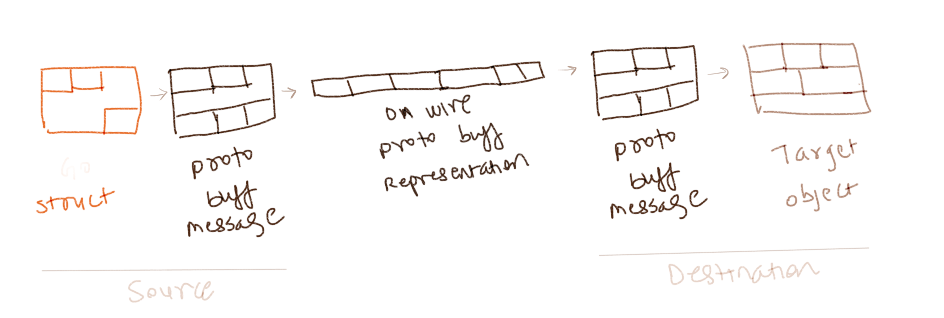 Go
struct
proto
buff
message
on wire
proto buff
Representation
proto
buff
message
Target
object
Source
Destination